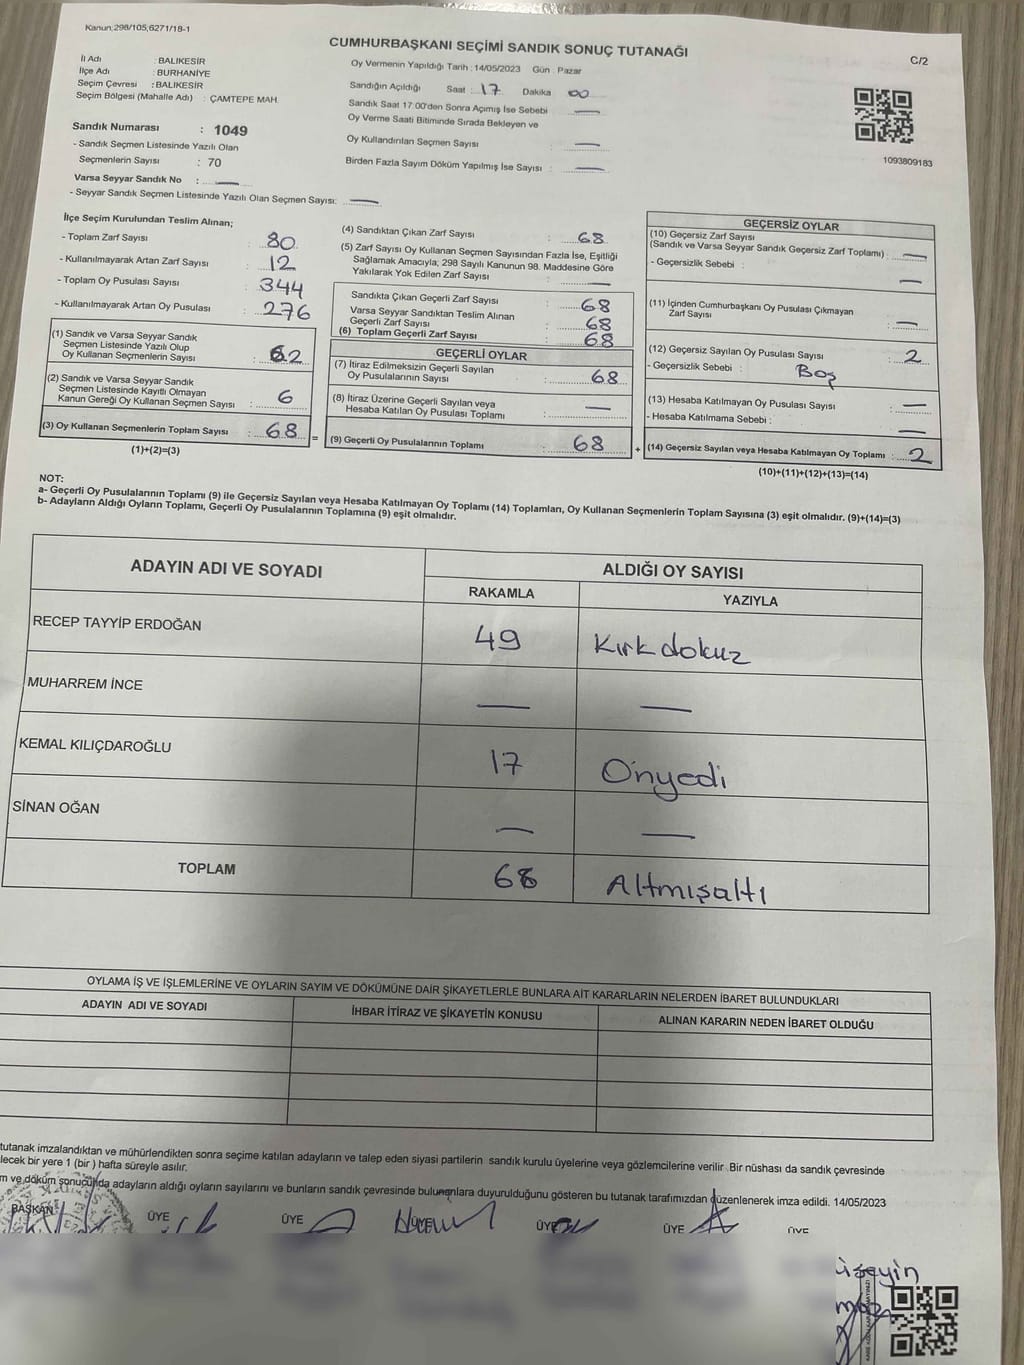 Kanun;298/105,6271/18-1
CUMHURBAŞKANI SEÇİMİ SANDIK SONUÇ TUTANAĞI
C/2
İl Adı : BALIKESİR
İlçe Adı : BURHANİYE
Seçim Çevresi : BALIKESİR
Seçim Bölgesi (Mahalle Adı) : ÇAMTEPE MAH.
Sandık Numarası : 1049
- Sandık Seçmen Listesinde Yazılı Olan
Seçmenlerin Sayısı : 70
Varsa Seyyar Sandık No : —
- Seyyar Sandık Seçmen Listesinde Yazılı Olan Seçmen Sayısı: —
Oy Vermenin Yapıldığı Tarih : 14/05/2023 Gün : Pazar
Sandığın Açıldığı Saat : 17 Dakika 00
Sandık Saat 17:00'den Sonra Açımış İse Sebebi —
Oy Verme Saati Bitiminde Sırada Bekleyen ve
Oy Kullandırılan Seçmen Sayısı : —
Birden Fazla Sayım Döküm Yapılmış İse Sayısı : —
1093809183
İlçe Seçim Kurulundan Teslim Alınan;
- Toplam Zarf Sayısı : 80
- Kullanılmayarak Artan Zarf Sayısı : 12
- Toplam Oy Pusulası Sayısı : 344
- Kullanılmayarak Artan Oy Pusulası : 276
(1) Sandık ve Varsa Seyyar Sandık
Seçmen Listesinde Yazılı Olup
Oy Kullanan Seçmenlerin Sayısı : 62
(2) Sandık ve Varsa Seyyar Sandık
Seçmen Listesinde Kayıtlı Olmayan
Kanun Gereği Oy Kullanan Seçmen Sayısı : 6
(3) Oy Kullanan Seçmenlerin Toplam Sayısı : 68
(1)+(2)=(3)
(4) Sandıktan Çıkan Zarf Sayısı : 68
(5) Zarf Sayısı Oy Kullanan Seçmen Sayısından Fazla İse, Eşitliği
Sağlamak Amacıyla; 298 Sayılı Kanunun 98. Maddesine Göre
Yakılarak Yok Edilen Zarf Sayısı : —
Sandıkta Çıkan Geçerli Zarf Sayısı : 68
Varsa Seyyar Sandıktan Teslim Alınan
Geçerli Zarf Sayısı : 68
(6) Toplam Geçerli Zarf Sayısı : 68
GEÇERLİ OYLAR
(7) İtiraz Edilmeksizin Geçerli Sayılan
Oy Pusulalarının Sayısı : 68
(8) İtiraz Üzerine Geçerli Sayılan veya
Hesaba Katılan Oy Pusulası Toplamı : —
= (9) Geçerli Oy Pusulalarının Toplamı : 68
GEÇERSİZ OYLAR
(10) Geçersiz Zarf Sayısı
(Sandık ve Varsa Seyyar Sandık Geçersiz Zarf Toplamı) : —
- Geçersizlik Sebebi : —
(11) İçinden Cumhurbaşkanı Oy Pusulası Çıkmayan
Zarf Sayısı : —
(12) Geçersiz Sayılan Oy Pusulası Sayısı : 2
- Geçersizlik Sebebi : Boş
(13) Hesaba Katılmayan Oy Pusulası Sayısı : —
- Hesaba Katılmama Sebebi : —
+ (14) Geçersiz Sayılan veya Hesaba Katılmayan Oy Toplamı : 2
(10)+(11)+(12)+(13)=(14)
NOT:
a- Geçerli Oy Pusulalarının Toplamı (9) ile Geçersiz Sayılan veya Hesaba Katılmayan Oy Toplamı (14) Toplamları, Oy Kullanan Seçmenlerin Toplam Sayısına (3) eşit olmalıdır. (9)+(14)=(3)
b- Adayların Aldığı Oyların Toplamı, Geçerli Oy Pusulalarının Toplamına (9) eşit olmalıdır.
ADAYIN ADI VE SOYADI
ALDIĞI OY SAYISI
RAKAMLA YAZIYLA
RECEP TAYYİP ERDOĞAN 49 Kırkdokuz
MUHARREM İNCE — —
KEMAL KILIÇDAROĞLU 17 Onyedi
SİNAN OĞAN — —
TOPLAM 68 Altmışaltı
OYLAMA İŞ VE İŞLEMLERİNE VE OYLARIN SAYIM VE DÖKÜMÜNE DAİR ŞİKAYETLERLE BUNLARA AİT KARARLARIN NELERDEN İBARET BULUNDUKLARI
ADAYIN ADI VE SOYADI İHBAR İTİRAZ VE ŞİKAYETİN KONUSU ALINAN KARARIN NEDEN İBARET OLDUĞU
tutanak imzalandıktan ve mühürlendikten sonra seçime katılan adayların ve talep eden siyasi partilerin sandık kurulu üyelerine veya gözlemcilerine verilir. Bir nüshası da sandık çevresinde
lecek bir yere 1 (bir ) hafta süreyle asılır.
m ve döküm sonucunda adayların aldığı oyların sayılarını ve bunların sandık çevresinde bulunanlara duyurulduğunu gösteren bu tutanak tarafımızdan düzenlenerek imza edildi. 14/05/2023
BAŞKAN ÜYE ÜYE ÜYE ÜYE ÜYE ÜYE
üseyin